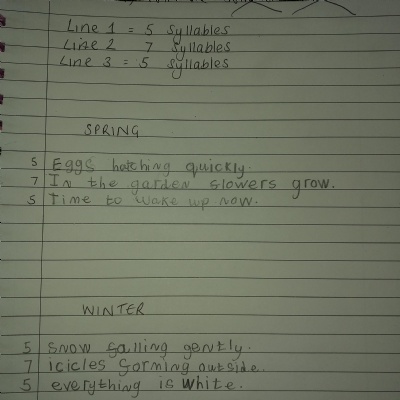 Line 1 = 5 Syllables
Line 2 7 Syllables
Line 3 = 5 Syllables
SPRING
5 Eggs hatching quickly.
7 In the garden slowers grow.
5 Time to wake up now.
WINTER
5 snow salling gently.
7 icicles sorming outside.
5 everything is white.